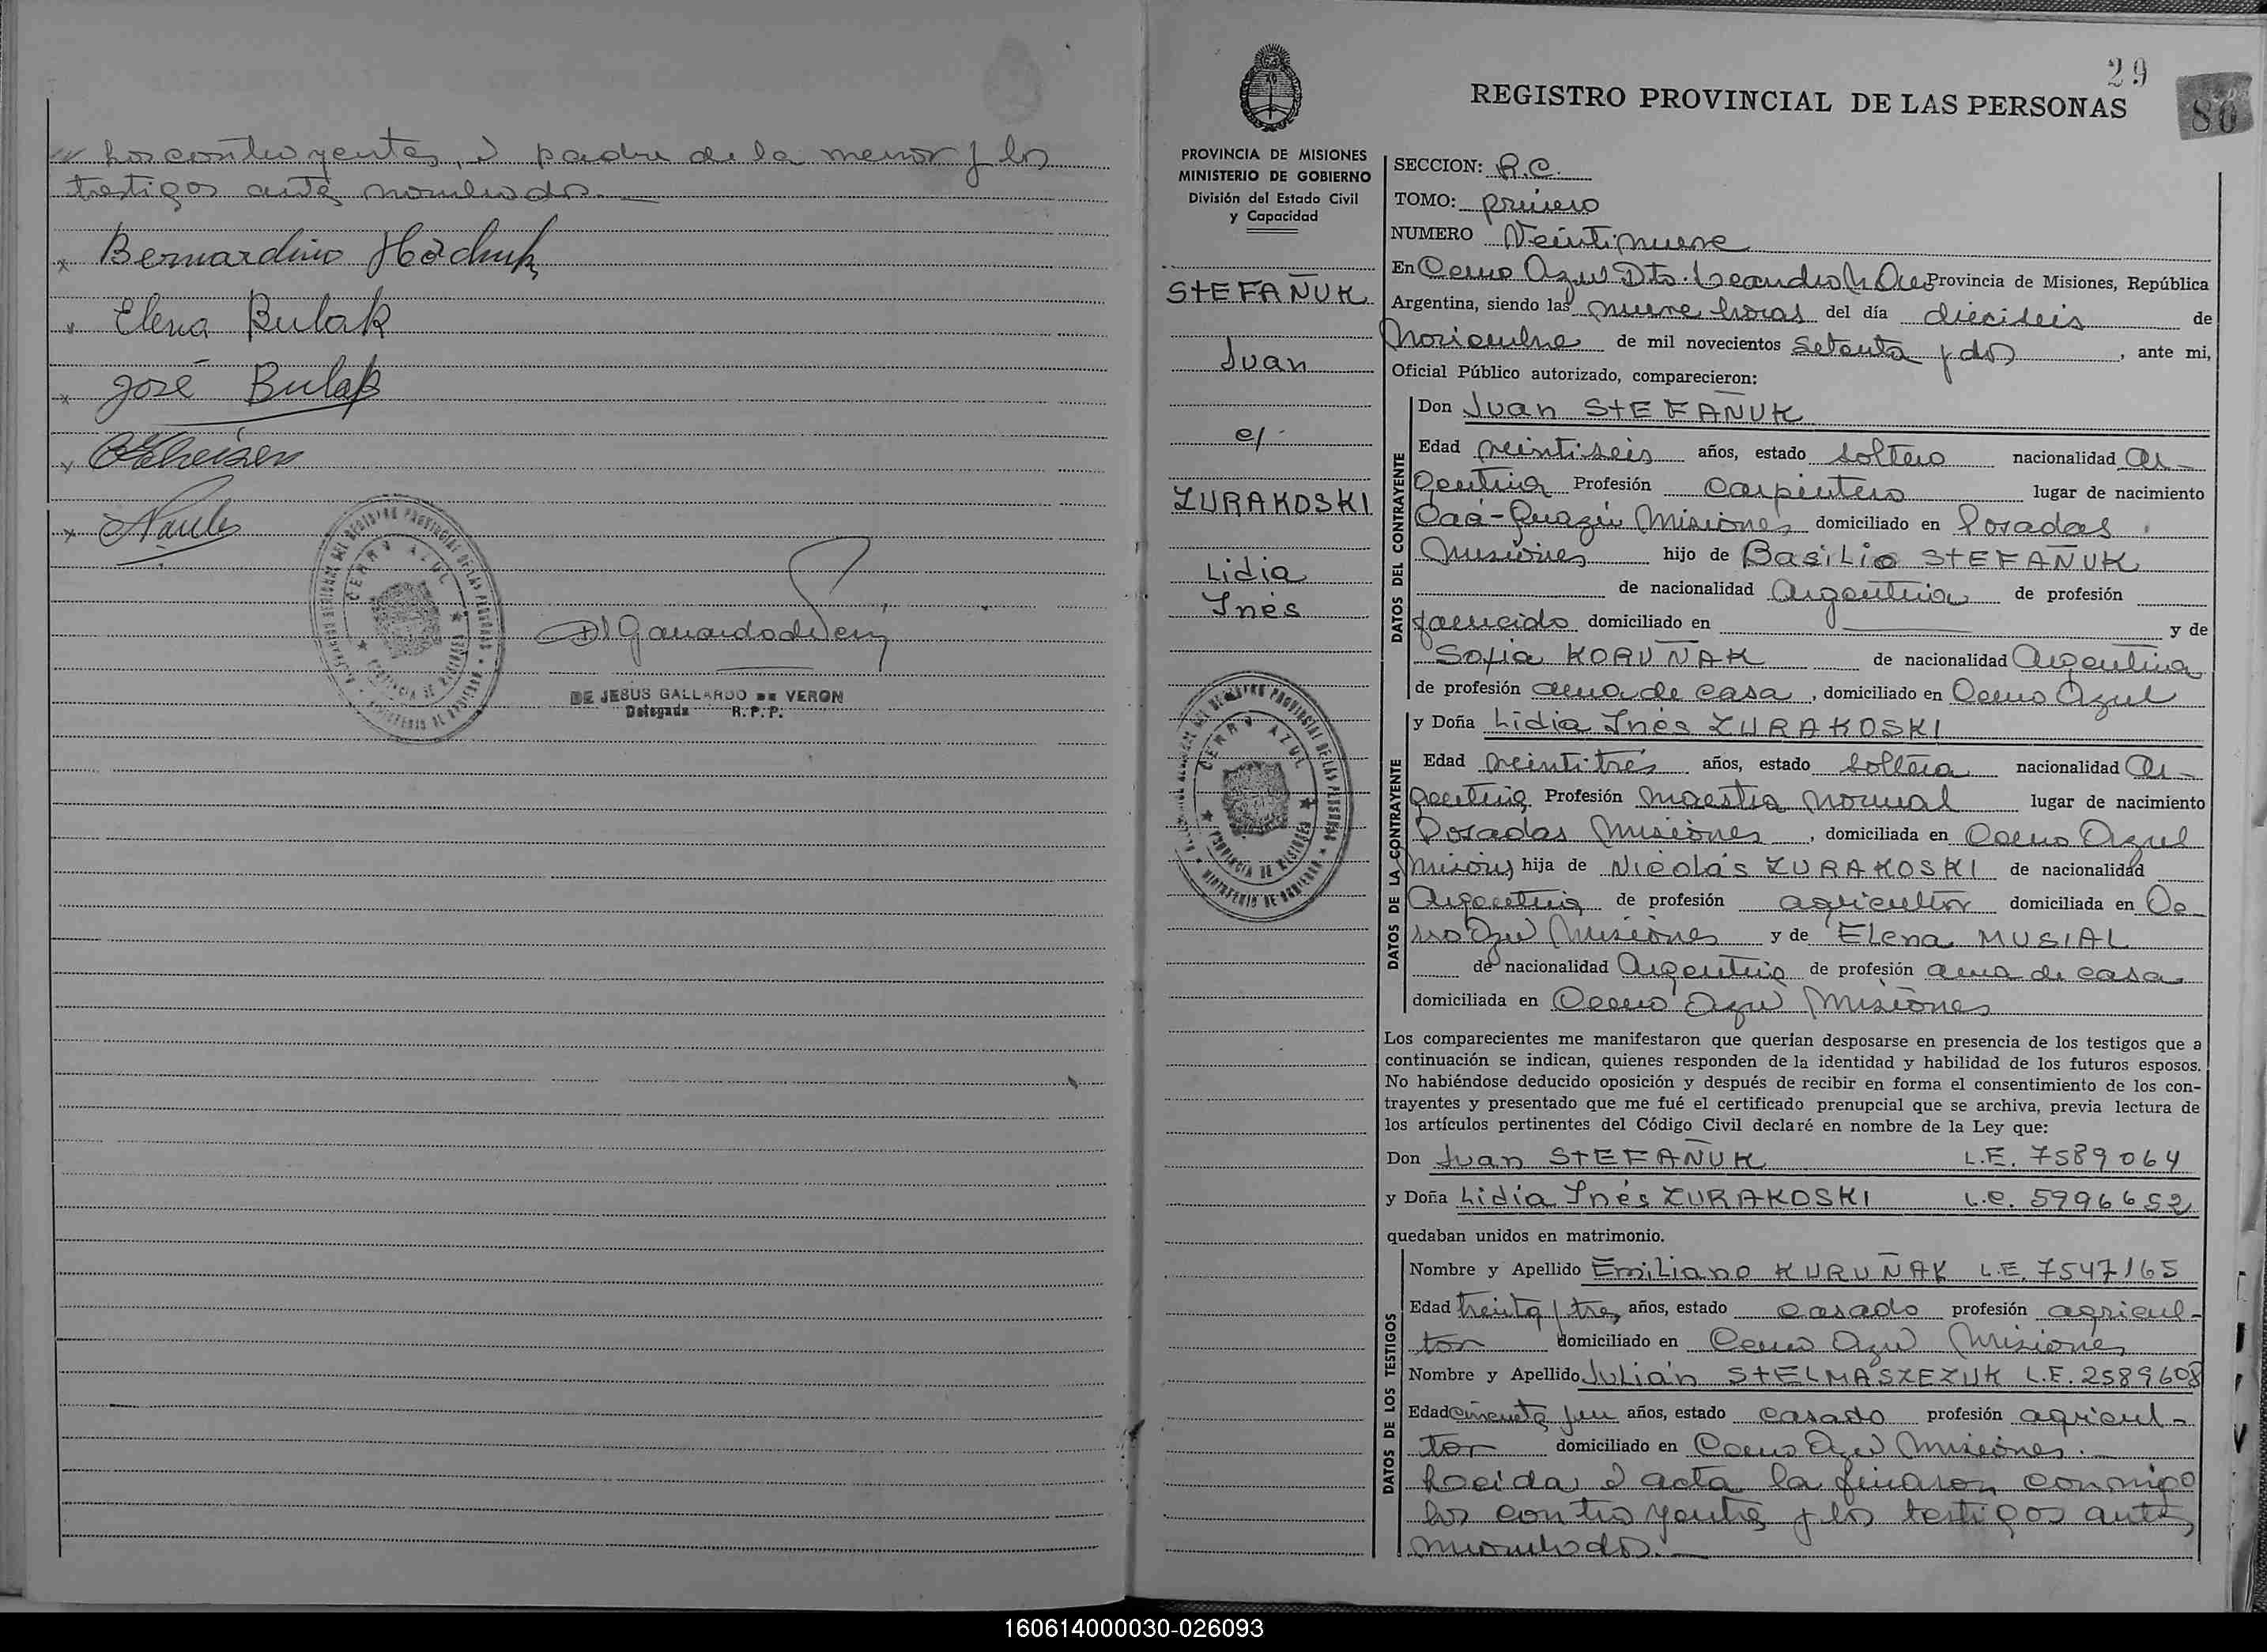 // los contrayentes, el padre de la menor y los
testigos antes nombrados.-
x Bernardino Hochuk
x Elena Bulak
x José Bulak
x
x
DE JESUS GALLARDO DE VERON
Delegada R.P.P.
CERRO AZUL
29
80
REGISTRO PROVINCIAL DE LAS PERSONAS
PROVINCIA DE MISIONES
MINISTERIO DE GOBIERNO
División del Estado Civil
y Capacidad
STEFAÑUK
Juan
c/
ZURAKOSKI
Lidia
Inés
CERRO AZUL
SECCION: R.C.
TOMO: primero
NUMERO Veintinueve
En Cerro Azul Dto. Leandro N. Alem Provincia de Misiones, República
Argentina, siendo las nueve horas del día dieciseis de
Noviembre de mil novecientos setenta y dos, ante mi,
Oficial Público autorizado, comparecieron:
DATOS DEL CONTRAYENTE
Don Juan STEFAÑUK
Edad veintiseis años, estado soltero nacionalidad ar-
gentina Profesión carpintero lugar de nacimiento
Caá-Guazú Misiones domiciliado en Posadas
Misiones hijo de Basilio STEFAÑUK
de nacionalidad Argentina de profesión
fallecido domiciliado en — y de
Sofia KORUÑAK de nacionalidad Argentina
de profesión ama de casa, domiciliado en Cerro Azul
DATOS DE LA CONTRAYENTE
y Doña Lidia Inés ZURAKOSKI
Edad veintitrés años, estado soltera nacionalidad Ar-
gentina Profesión Maestra Normal lugar de nacimiento
Posadas Misiones, domiciliada en Cerro Azul
Misiones hija de Nicolás ZURAKOSKI de nacionalidad
Argentina de profesión agricultor domiciliada en Ce-
rro Azul Misiones y de Elena MUSIAL
de nacionalidad Argentina de profesión ama de casa
domiciliada en Cerro Azul Misiones
Los comparecientes me manifestaron que querían desposarse en presencia de los testigos que a
continuación se indican, quienes responden de la identidad y habilidad de los futuros esposos.
No habiéndose deducido oposición y después de recibir en forma el consentimiento de los con-
trayentes y presentado que me fué el certificado prenupcial que se archiva, previa lectura de
los artículos pertinentes del Código Civil declaré en nombre de la Ley que:
Don Juan STEFAÑUK L.E. 7589064
y Doña Lidia Inés ZURAKOSKI L.C. 5996652
quedaban unidos en matrimonio.
DATOS DE LOS TESTIGOS
Nombre y Apellido Emiliano KURUÑAK L.E. 7547165
Edad treinta y tres años, estado casado profesión agricul-
tor domiciliado en Cerro Azul Misiones
Nombre y Apellido Julián STELMASZEZUK L.E. 2589608
Edad cincuenta y un años, estado casado profesión agricul-
tor domiciliado en Cerro Azul Misiones.-
Leída el acta la firmaron conmigo
los contrayentes y los testigos antes
nombrados.-
160614000030-026093